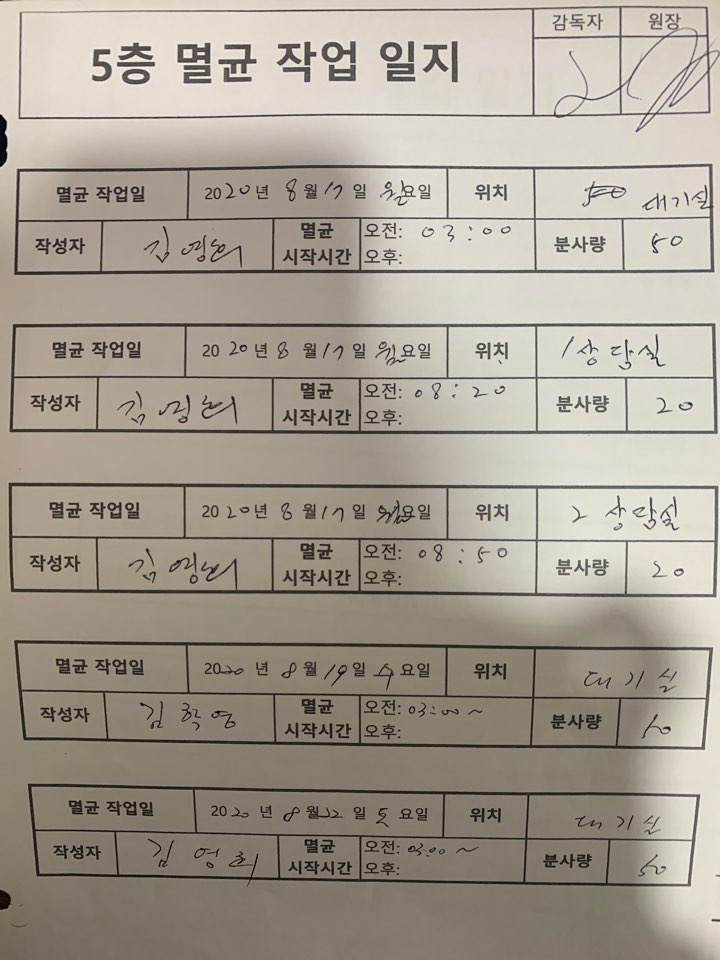 감독자 원장
5층 멸균 작업 일지
멸균 작업일 2020년 8월 17일 월요일 위치 대기실
작성자 김영희 멸균 시작시간 오전: 03:00 오후: 분사량 50
멸균 작업일 2020년 8월 17일 월요일 위치 1상담실
작성자 김영희 멸균 시작시간 오전: 08:20 오후: 분사량 20
멸균 작업일 2020년 8월 17일 월요일 위치 2 상담실
작성자 김영희 멸균 시작시간 오전: 08:50 오후: 분사량 20
멸균 작업일 2020년 8월 19일 수요일 위치 대기실
작성자 김학영 멸균 시작시간 오전: 03:00~ 오후: 분사량 50
멸균 작업일 2020년 8월 22일 토요일 위치 대기실
작성자 김영희 멸균 시작시간 오전: 03:00~ 오후: 분사량 50